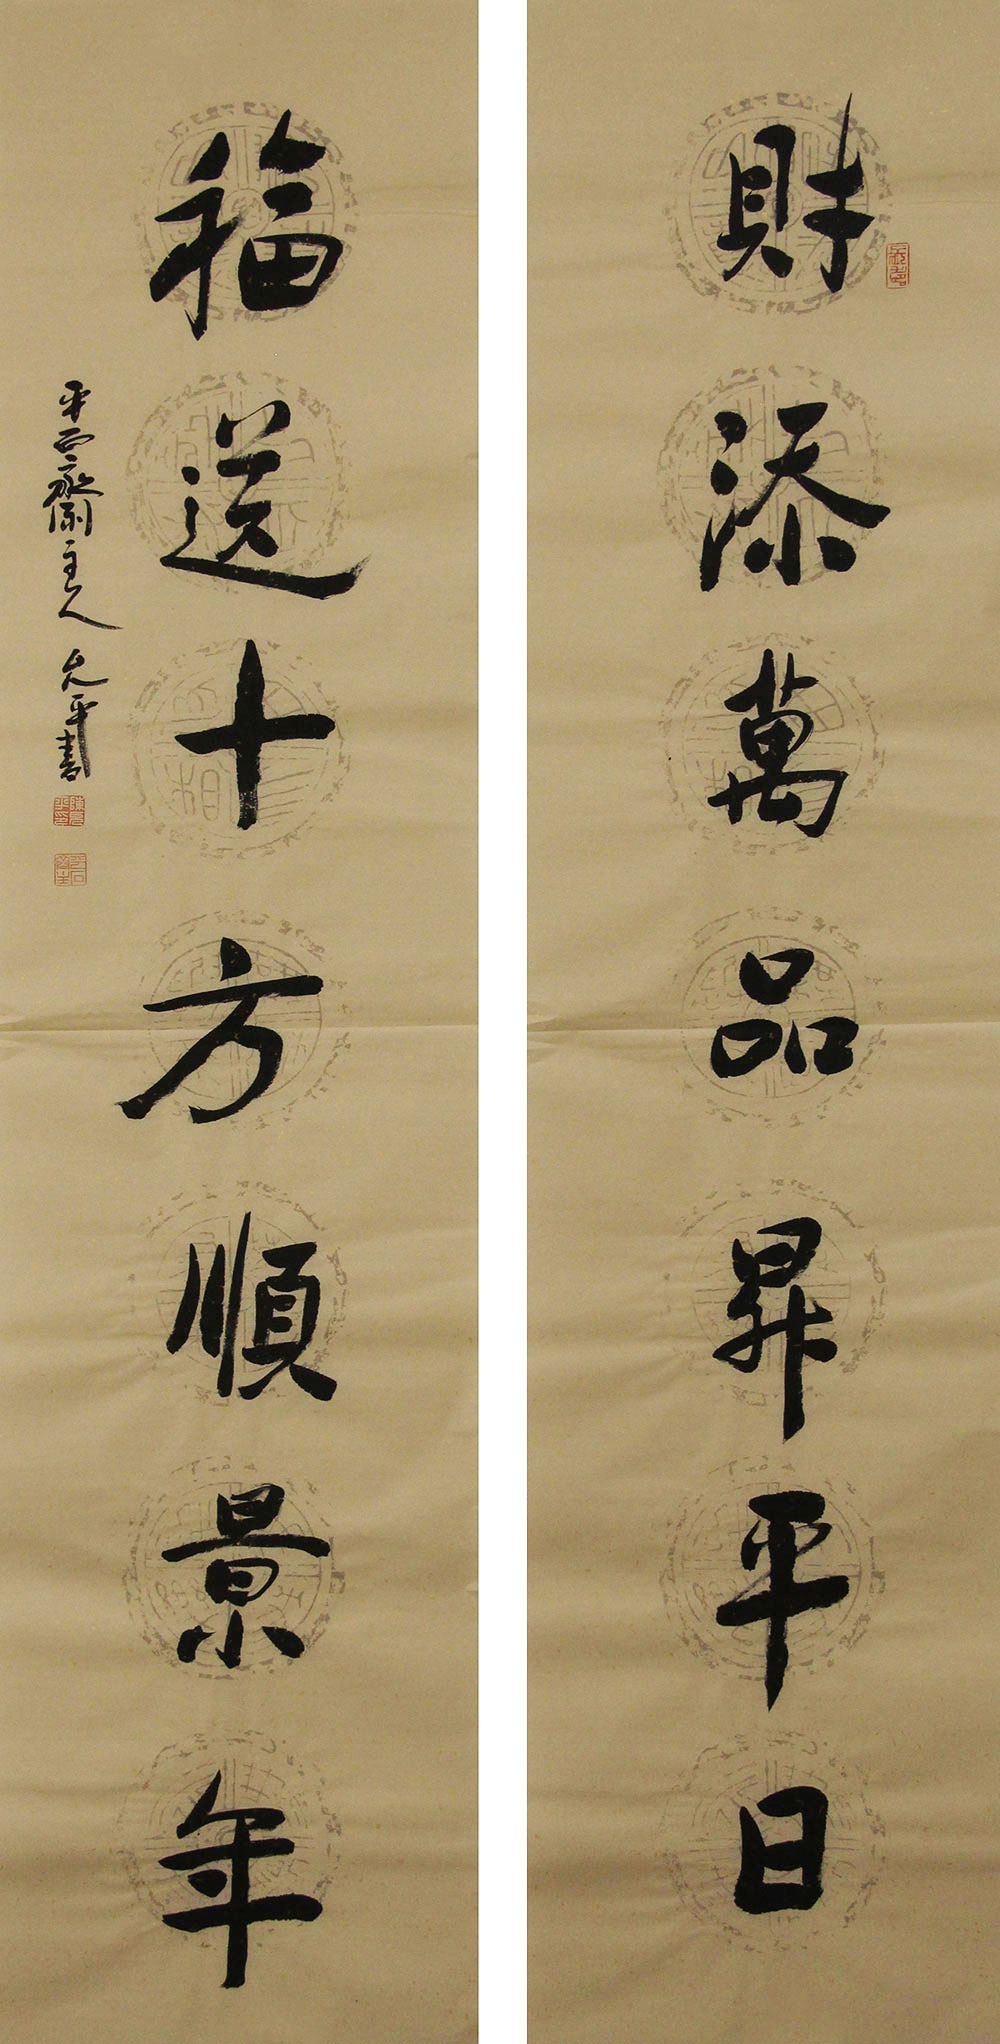 財添萬品昇平日
福送十方順景年
平石齋主人 允平書